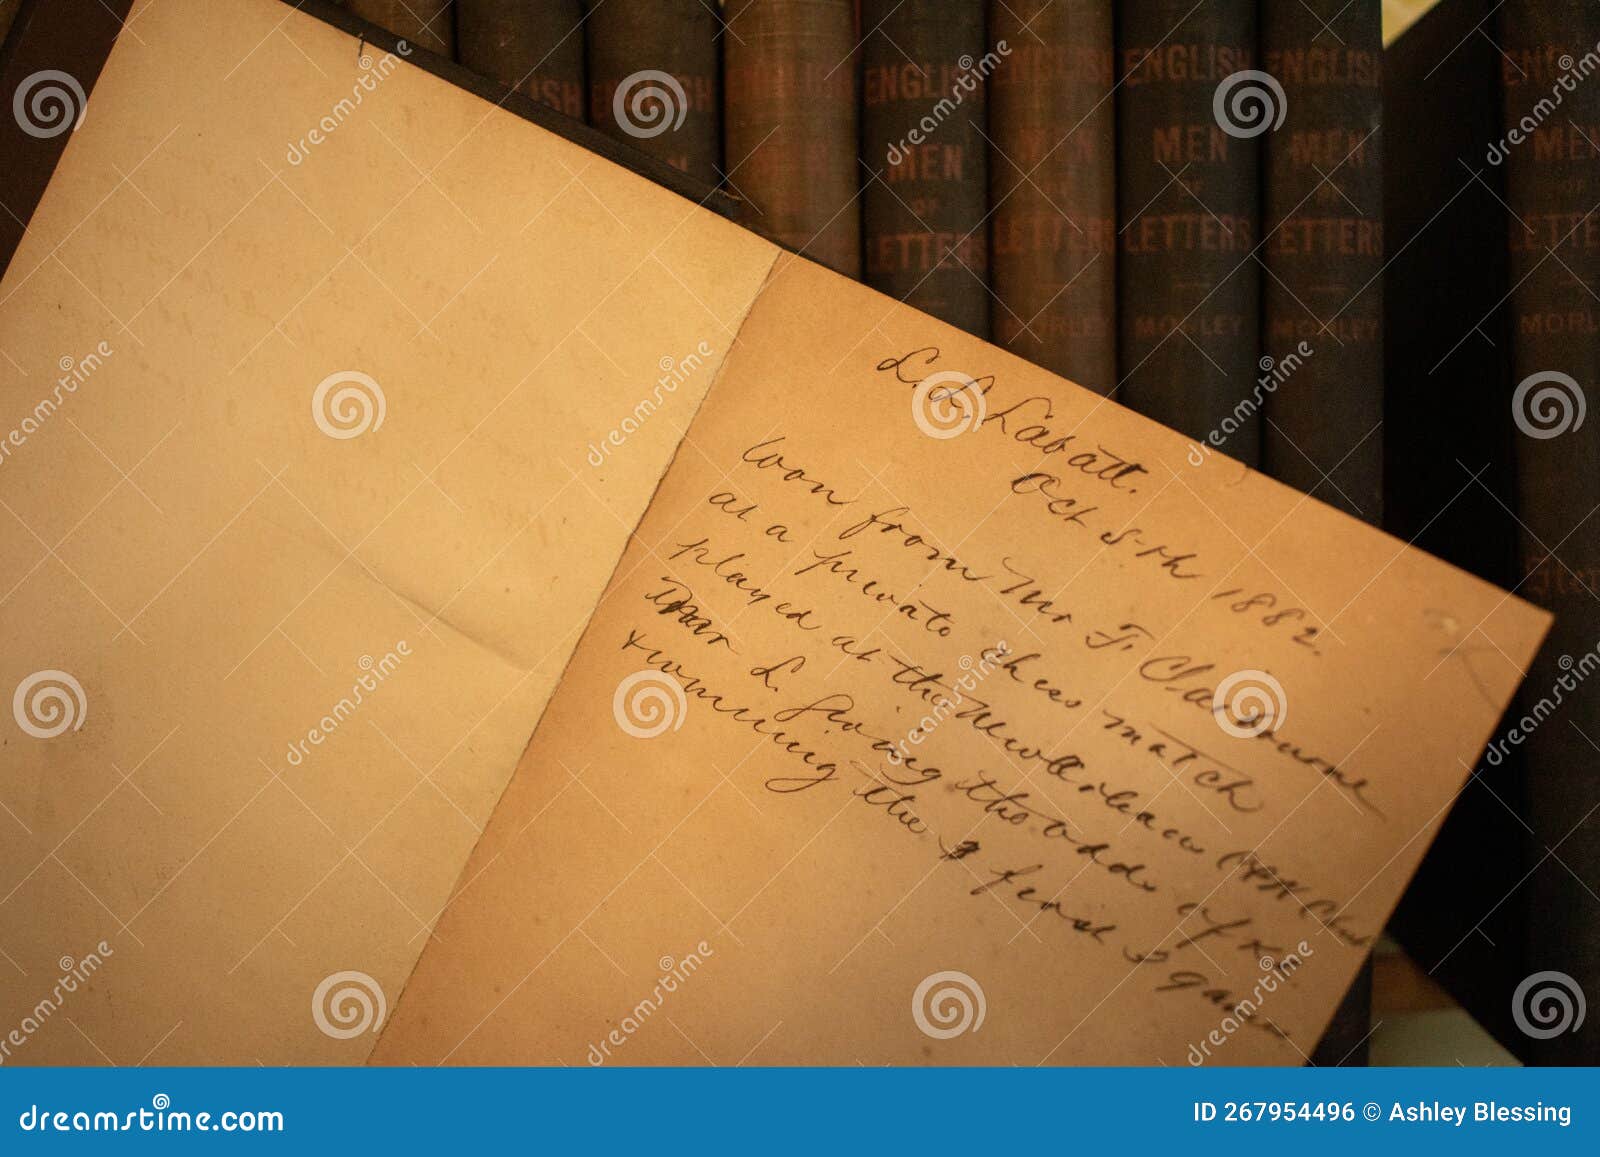 ENGLISH MEN OF LETTERS MORLEY
ENGLISH MEN OF LETTERS
ENGLISH MEN OF LETTERS MORLEY
ENGLISH MEN OF LETTERS MORLEY
ENGLISH MEN OF LETTERS MORLEY
L. L. Labatt.
Oct 8th 1882.
Won from Mr F. Claiborne
at a private chess match
played at the New Orleans Chess
Mr L. giving the odds of Kt.
& winning the first 3 games
dreamstime.com
ID 267954496 © Ashley Blessing